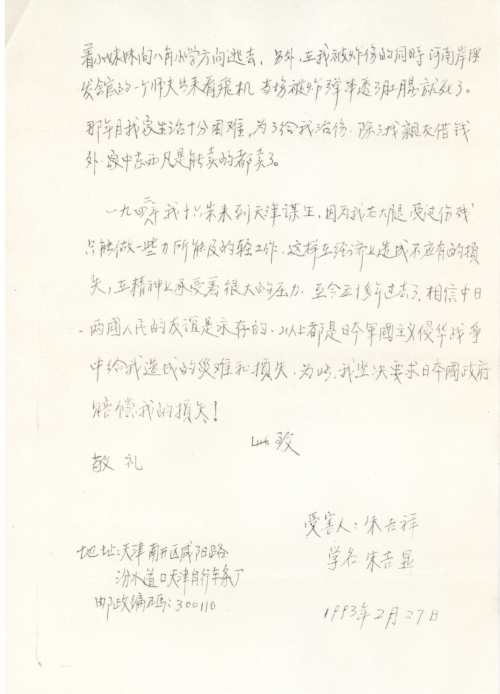 着小妹妹向八角小学方向逃去，另外，在我被炸伤的同时河南岸理
发会馆的一个师夫出来看飛机 当场被炸弹串透了肚腸就死了。
那年月我家生活十分困难，为了给我治伤，除了找親友借钱
外，家中东西凡是能卖的都卖了。
一九四六年我十六岁来到天津谋生，因为我左大腿受过伤残
只能做一些力所能及的轻工作，这样在经济上造成不应有的損
失，在精神上承受着很大的压力，至今五十多年过去了，相信中日
两國人民的友谊是永存的，以上都是日本軍國主义侵华战争
中给我造成的災难和損失，为此，我坚决要求日本國政府
賠偿我的損失！
此致
敬礼
受害人：朱吉祥
学名 朱吉显
地址：天津南开区咸阳路
汾水道口天津自行车条厂
邮政编码：300110
1993年2月27日